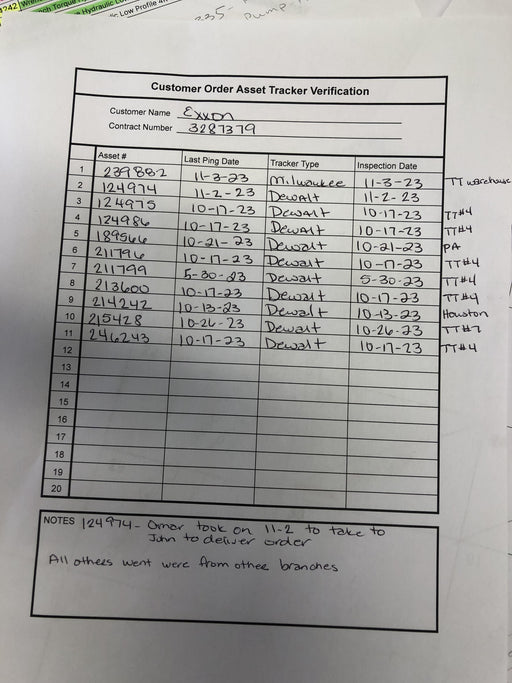 242
Hydraulic
Low Profile
235-
Pump
Customer Order Asset Tracker Verification
Customer Name Exxon
Contract Number 3287379
Asset # Last Ping Date Tracker Type Inspection Date
1 239882 11-3-23 Milwaukee 11-3-23 TT warehouse
2 124974 11-2-23 Dewalt 11-2-23
3 124975 10-17-23 Dewalt 10-17-23 TT#4
4 124986 10-17-23 Dewalt 10-17-23 TT#4
5 189566 10-21-23 Dewalt 10-21-23 PA
6 211796 10-17-23 Dewalt 10-17-23 TT#4
7 211799 5-30-23 Dewalt 5-30-23 TT#4
8 213600 10-17-23 Dewalt 10-17-23 TT#4
9 214242 10-13-23 Dewalt 10-13-23 Houston
10 215428 10-26-23 Dewalt 10-26-23 TT#7
11 246243 10-17-23 Dewalt 10-17-23 TT#4
12
13
14
15
16
17
18
19
20
NOTES 124974- Omar took on 11-2 to take to
John to deliver order
All others went were from other branches